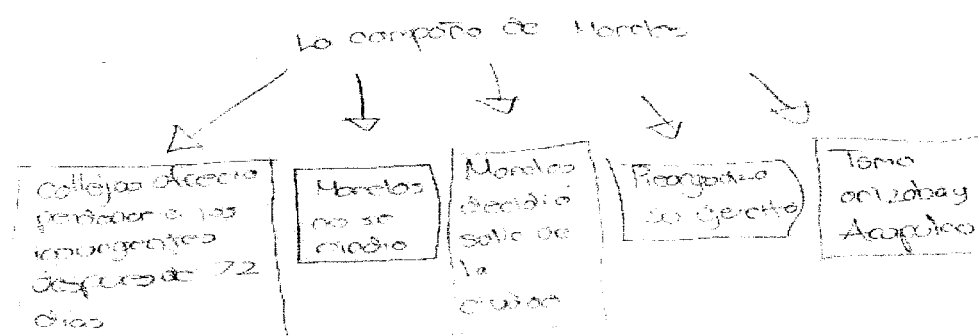 La campaña de Morelos
Callejas ofrecio
perdonar a los
insurgentes
despues de 72
dias
Morelos
no se
rindio
Morelos
decidió
salir de
la
ciudad
Reorganizo
su ejercito
Toma
orizaba y
Acapulco